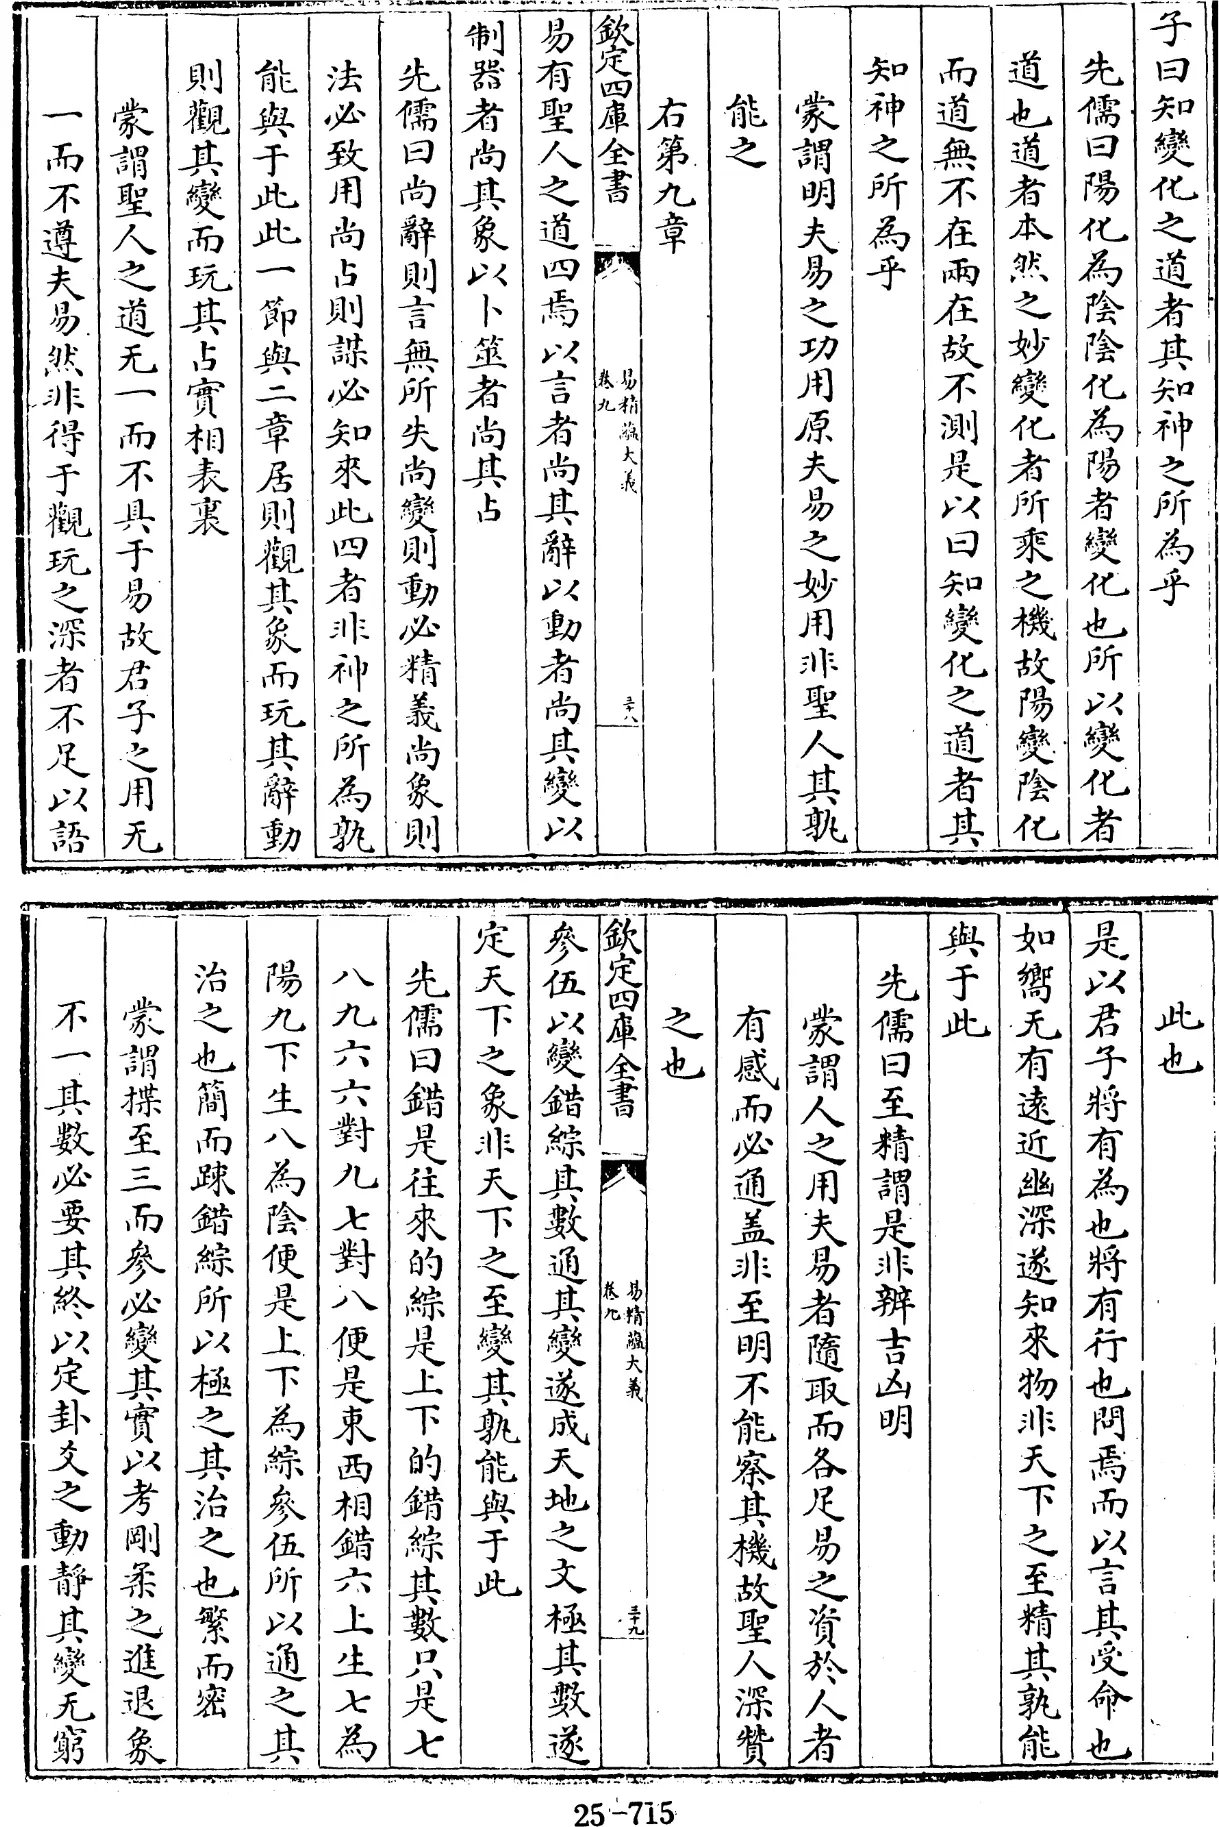 子曰知變化之道者其知神之所為乎
先儒曰陽化為陰陰化為陽者變化也所以變化者
道也道者本然之妙變化者所乘之機故陽變陰化
而道無不在兩在故不測是以曰知變化之道者其
知神之所為乎
蒙謂明夫易之功用原夫易之妙用非聖人其孰
能之
右第九章
欽定四庫全書
易精蘊大義
卷九
三十八
易有聖人之道四焉以言者尚其辭以動者尚其變以
制器者尚其象以卜筮者尚其占
先儒曰尚辭則言無所失尚變則動必精義尚象則
法必致用尚占則謀必知來此四者非神之所為孰
能與于此此一節與二章居則觀其象而玩其辭動
則觀其變而玩其占實相表裏
蒙謂聖人之道无一而不具于易故君子之用无
一而不遵夫易然非得于觀玩之深者不足以語
此也
是以君子將有為也將有行也問焉而以言其受命也
如嚮无有遠近幽深遂知來物非天下之至精其孰能
與于此
先儒曰至精謂是非辨吉凶明
蒙謂人之用夫易者隨取而各足易之資於人者
有感而必通盖非至明不能察其機故聖人深贊
之也
欽定四庫全書
易精蘊大義
卷九
三十九
參伍以變錯綜其數通其變遂成天地之文極其數遂
定天下之象非天下之至變其孰能與于此
先儒曰錯是往來的綜是上下的錯綜其數只是七
八九六六對九七對八便是東西相錯六上生七為
陽九下生八為陰便是上下為綜參伍所以通之其
治之也簡而踈錯綜所以極之其治之也繁而密
蒙謂揲至三而參必變其實以考剛柔之進退象
不一其數必要其終以定卦爻之動靜其變无窮
25-715